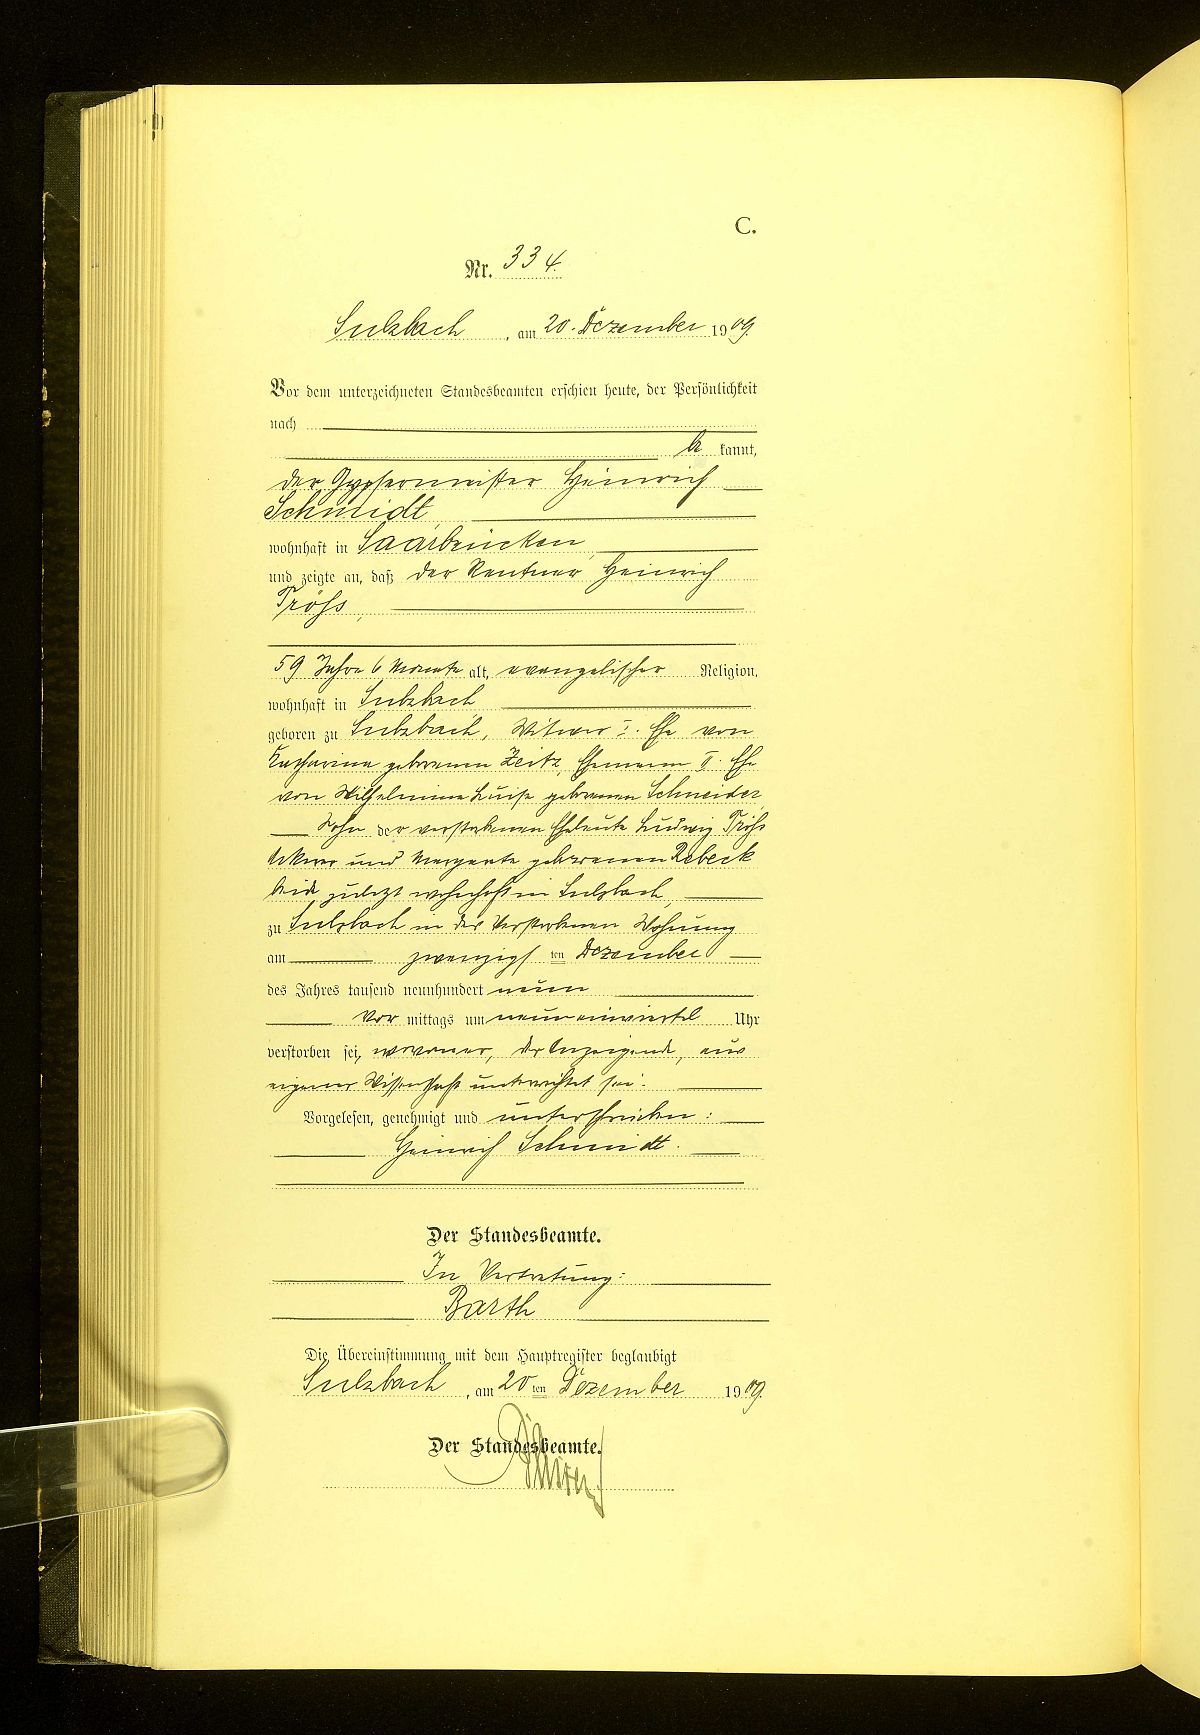 C.
Nr. 334.
Sulzbach, am 20. Dezember 1909.
Vor dem unterzeichneten Standesbeamten erschien heute, der Persönlichkeit
nach
be kannt,
der Gypsermeister Heinrich
Schmidt
wohnhaft in Saarbrücken,
und zeigte an, daß der Rentner Heinrich
Tröhs,
59 Jahre 6 Monate alt, evangelischer Religion,
wohnhaft in Sulzbach
geboren zu Sulzbach, Witwer I. Ehe von
Katharina geborenen Zeitz, Ehemann II. Ehe
von Wilhelmine Luise geborenen Schneider,
Sohn der verstorbenen Eheleute Ludwig Tröhs
Ackerer und Margarete geborenen Rebeck
beide zuletzt wohnhaft in Sulzbach,
zu Sulzbach in der Verstorbenen Wohnung
am zwanzigsten Dezember
des Jahres tausend neunhundert neun
Vor mittags um neun einviertel Uhr
verstorben sei, wovon er, der Anzeigende, aus
eigener Wissenschaft unterrichtet sei.
Vorgelesen, genehmigt und unterschrieben:
Heinrich Schmidt.
Der Standesbeamte.
In Vertretung:
Barth
Die Übereinstimmung mit dem Hauptregister beglaubigt
Sulzbach, am 20ten Dezember 1909.
Der Standesbeamte.